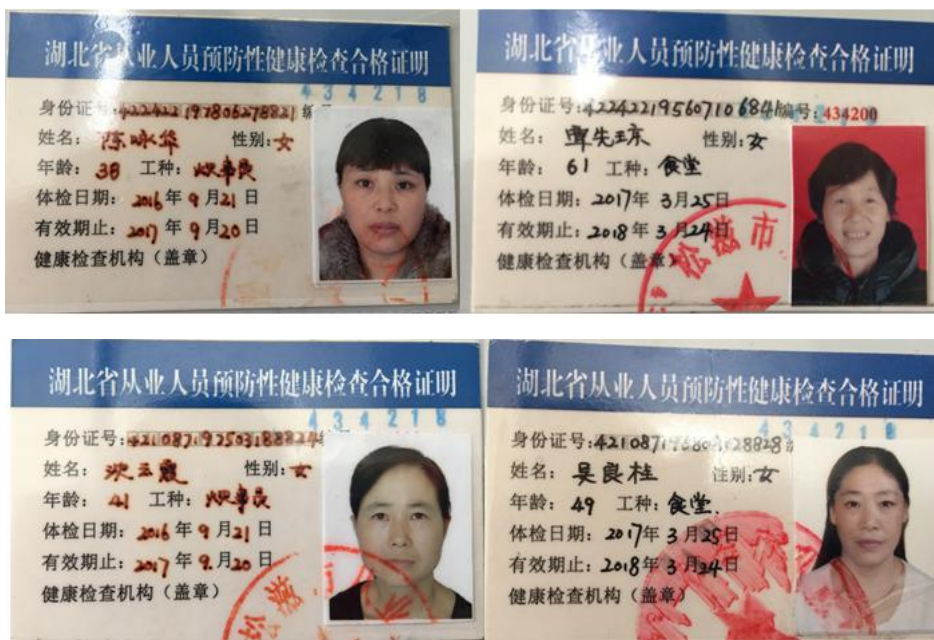 湖北省从业人员预防性健康检查合格证明
434218
身份证号:
姓名: 陈咏华 性别:女
年龄: 38 工种: 炊事员
体检日期: 2016年9月21日
有效期止: 2017年9月20日
健康检查机构(盖章)
湖北省从业人员预防性健康检查合格证明
身份证号: 编号:434200
姓名: 覃先琼 性别:女
年龄: 61 工种: 食堂
体检日期: 2017年3月25日
有效期止: 2018年3月24日
健康检查机构(盖章)
松滋市
湖北省从业人员预防性健康检查合格证明
434218
身份证号:
姓名: 性别:女
年龄: 41 工种: 炊事员
体检日期: 2016年9月21日
有效期止: 2017年9月20日
健康检查机构(盖章)
松滋市
湖北省从业人员预防性健康检查合格证明
434218
身份证号:
姓名: 吴良桂 性别:女
年龄: 49 工种: 食堂.
体检日期: 2017年3月25日
有效期止: 2018年3月24日
健康检查机构(盖章)